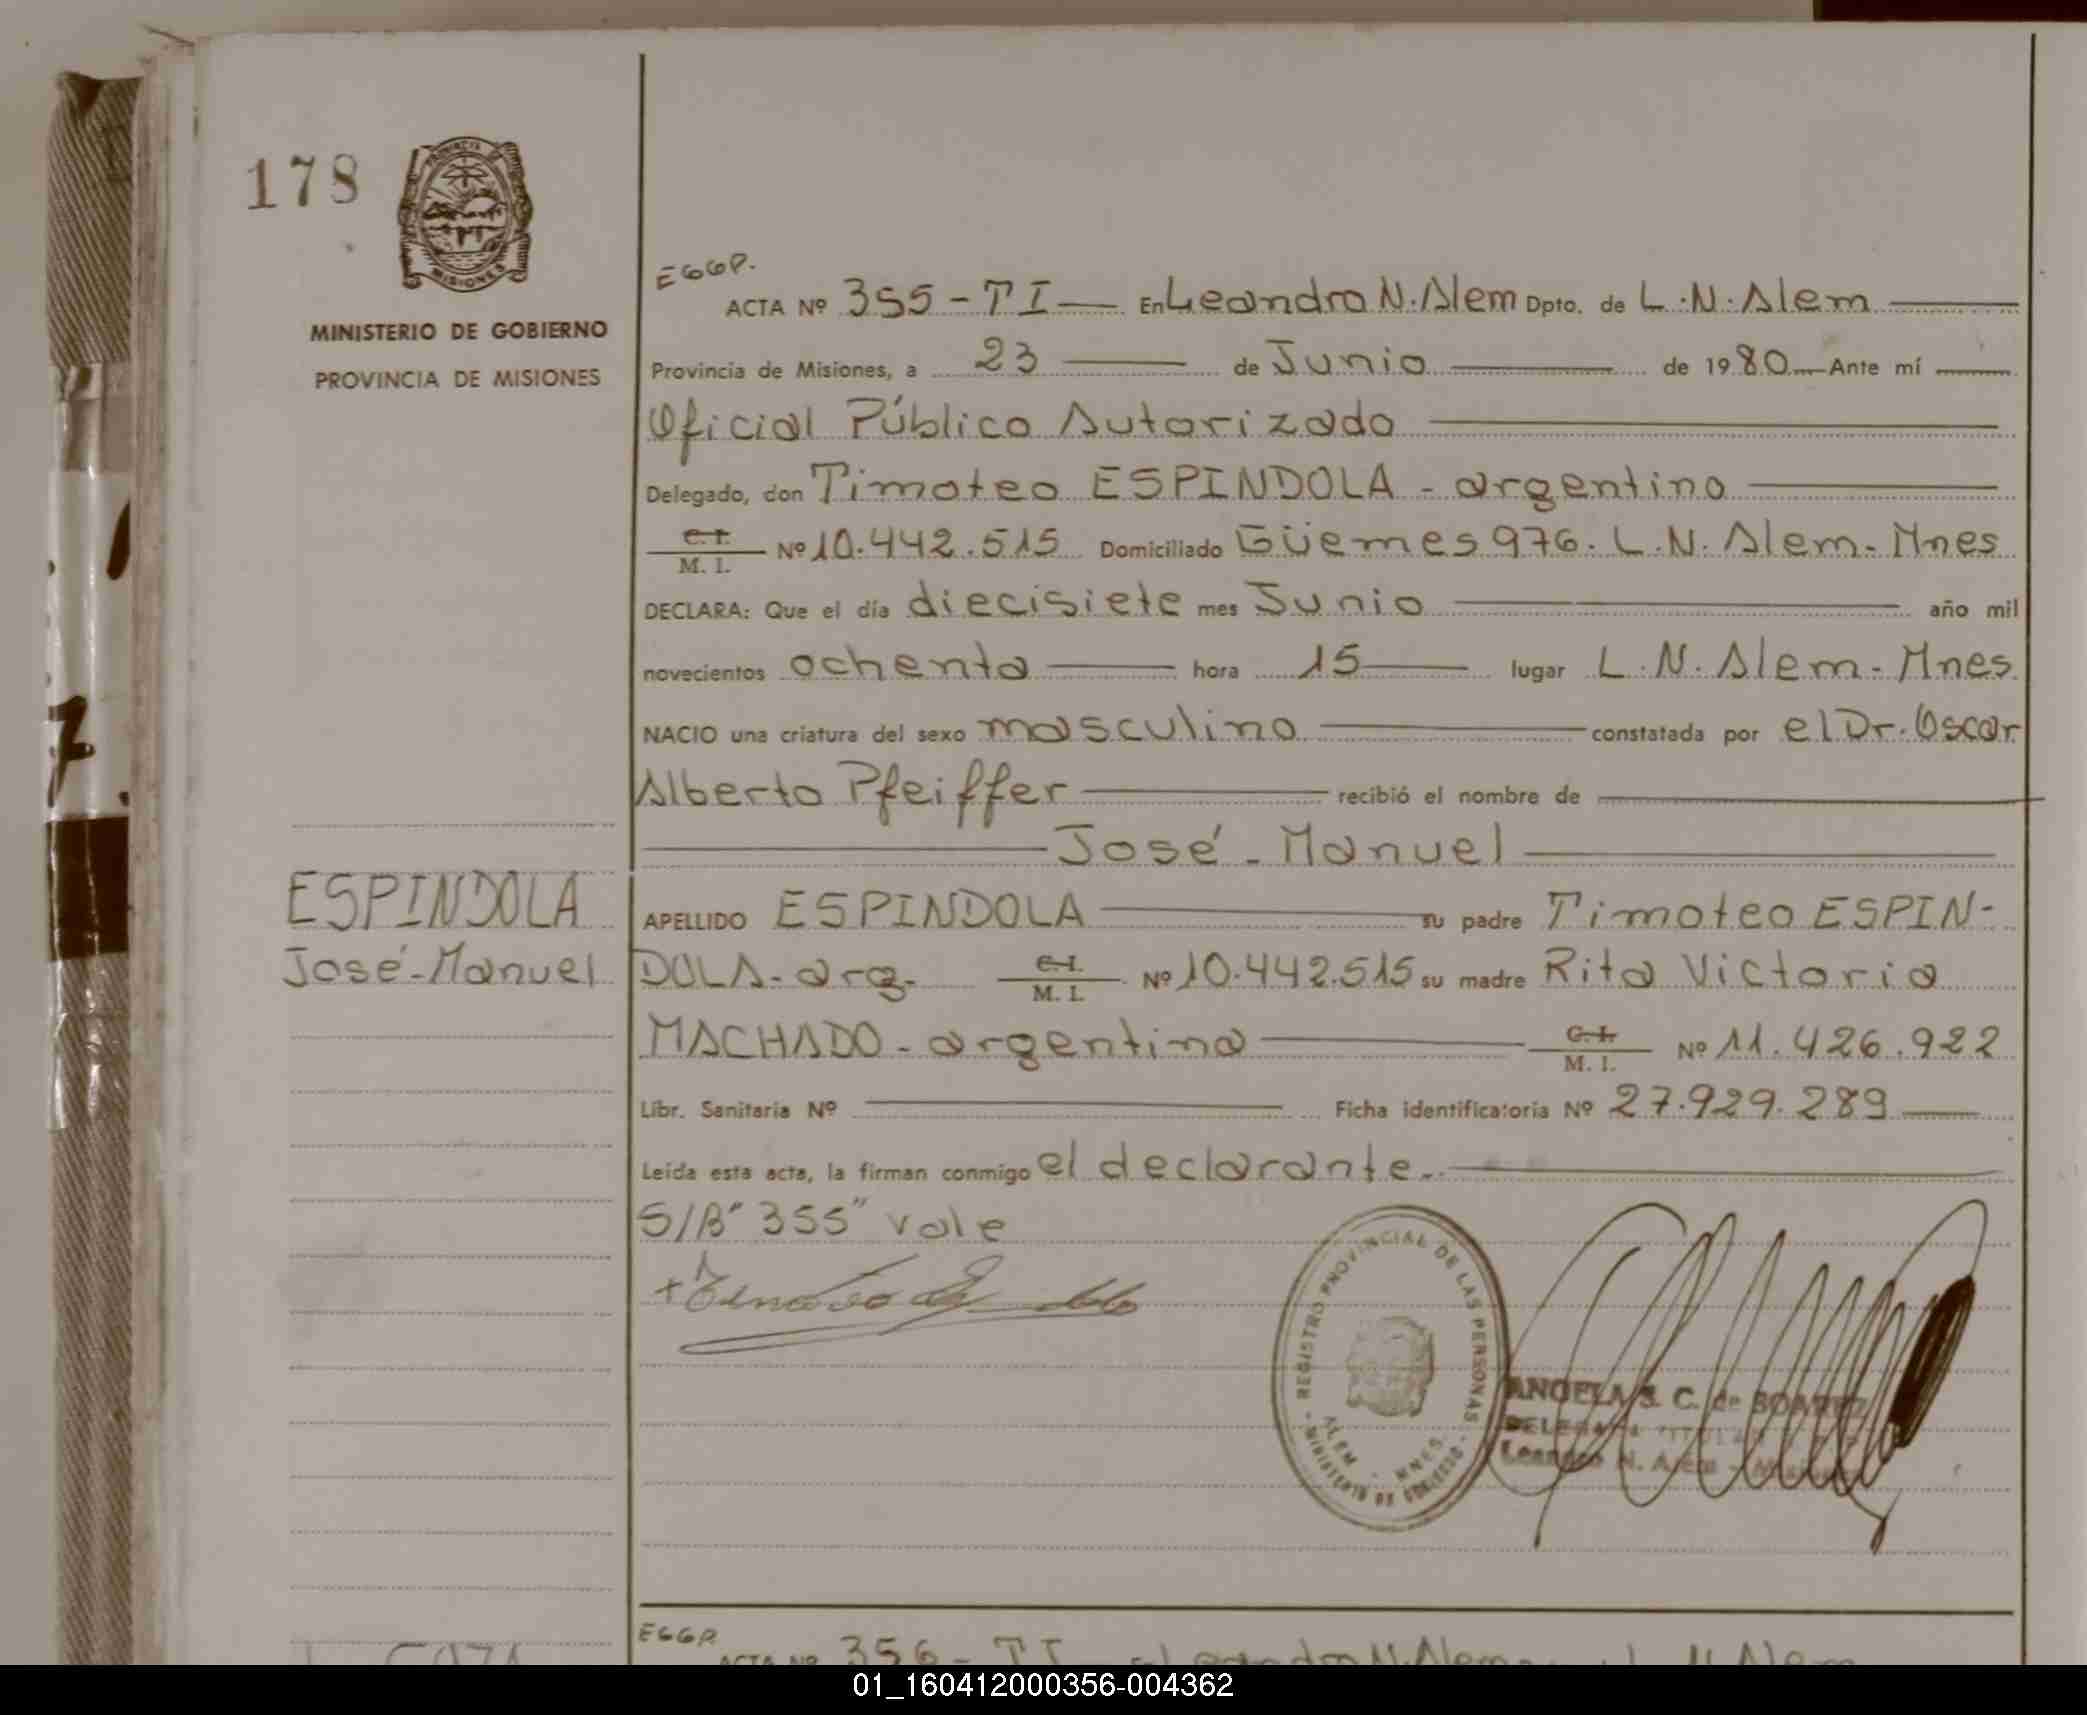 178
PROVINCIA DE
MISIONES
MINISTERIO DE GOBIERNO
PROVINCIA DE MISIONES
EGGP.
ACTA Nº 355 - TI — En Leandro N. Alem Dpto. de L. N. Alem —
Provincia de Misiones, a 23 — de Junio — de 1980 — Ante mí —
Oficial Público Autorizado —
Delegado, don Timoteo ESPINDOLA - argentino —
C. I.
M. I. Nº 10.442.515 Domiciliado Güemes 976. L.N. Alem - Mnes
DECLARA: Que el día diecisiete mes Junio — año mil
novecientos ochenta — hora 15 — lugar L. N. Alem - Mnes.
NACIO una criatura del sexo masculino — constatada por el Dr. Oscar
Alberto Pfeiffer — recibió el nombre de —
— José - Manuel —
ESPINDOLA
José-Manuel
APELLIDO ESPINDOLA — su padre Timoteo ESPIN-
DOLA - arg. C. I. M. I. Nº 10.442.515 su madre Rita Victoria
MACHADO - argentina — C. I. M. I. Nº 11.426.922
Libr. Sanitaria Nº — Ficha identificatoria Nº 27.929.289 —
Leída esta acta, la firman conmigo el declarante. —
S/B "355" vale
REGISTRO PROVINCIAL DE LAS PERSONAS
ALEM - MNES.
MINISTERIO DE GOBIERNO
ANGELA S. C. de SOAREZ
DELEGADA TITULAR
Leandro N. Alem - Misiones
EGGP.
ACTA Nº 356 - TI — En Leandro N. Alem L. N. Alem
01_160412000356-004362